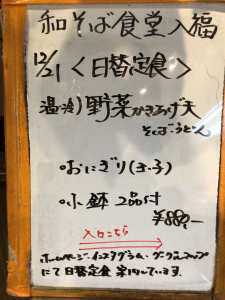 和そば食堂入福
12/21 <日替定食>
温(冷) 野菜かきあげ天
そば・うどん
○おにぎり(3.子)
○小鉢 2品付
¥880-
入口こちら
ホームページ・インスタグラム・グーグルマップ
にて日替定食 案内しています。